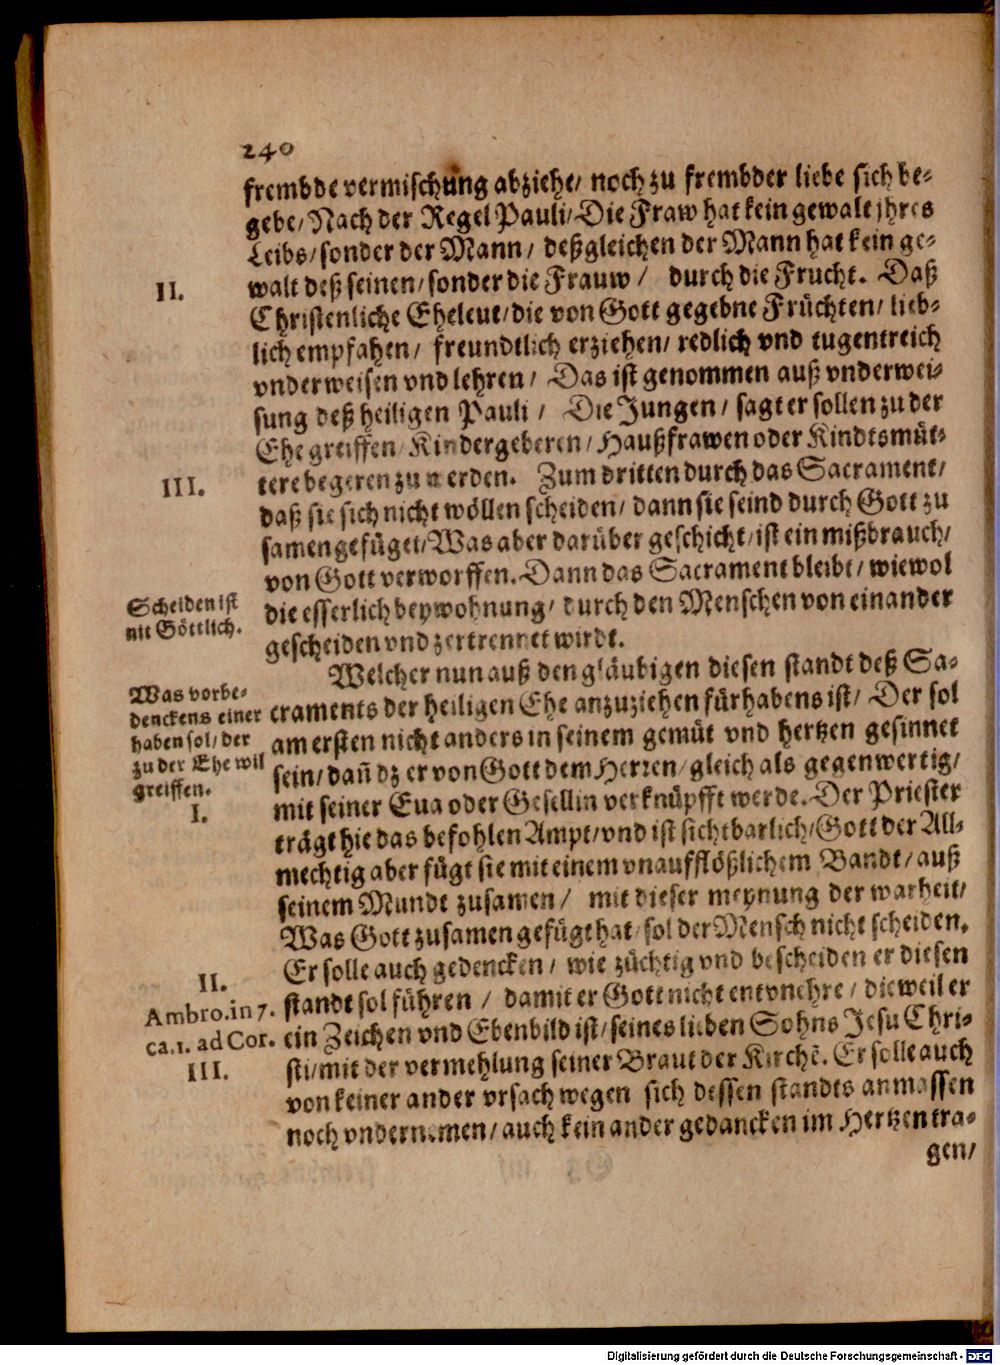 240
frembde vermischung abziehe/ noch zu frembder liebe sich be-
gebe/ Nach der Regel Pauli/ Die Fraw hat kein gewalt jhres
Leibs/ sonder der Mann/ deßgleichen der Mann hat kein ge-
II.
walt deß seinen/ sonder die Frauw/ durch die Frucht. Daß
Christenliche Eheleut/ die von Gott gegebne Früchten/ lieb-
lich empfahen/ freundtlich erziehen/ redlich vnd tugentreich
vnderweisen vnd lehren/ Das ist genommen auß vnderwei-
sung deß heiligen Pauli/ Die Jungen/ sagt er sollen zu der
Ehe greiffen Kindergeberen/ Haußfrawen oder Kindtsmüt-
III.
tere begeren zu werden. Zum dritten durch das Sacrament/
daß sie sich nicht wöllen scheiden/ dann sie seind durch Gott zu
samen gefüget/ Was aber darüber geschicht/ ist ein mißbrauch/
von Gott verworffen. Dann das Sacrament bleibt/ wiewol
Scheiden ist
nit Göttlich.
die esserlich beywohnung/ durch den Menschen von einander
gescheiden vnd zertrennet wirdt.
Welcher nun auß den gläubigen diesen standt deß Sa-
Was vorbe-
denckens einer
haben sol/ der
zu der Ehe wil
greiffen.
I.
craments der heiligen Ehe anzuziehen fürhabens ist/ Der sol
am ersten nicht anders in seinem gemüt vnd hertzen gesinnet
sein/ dañ dz er von Gott dem Herren/ gleich als gegenwertig/
mit seiner Eua oder Gesellin verknüpfft werde. Der Priester
trägt hie das befohlen Ampt/ vnd ist sichtbarlich/ Gott der All-
mechtig aber fügt sie mit einem vnaufflößlichem Bandt/ auß
seinem Mundt zusamen/ mit dieser meynung der warheit/
Was Gott zusamen gefügt hat/ sol der Mensch nicht scheiden.
II.
Er solle auch gedencken/ wie züchtig vnd bescheiden er diesen
Ambro. in 7.
ca. 1. ad Cor.
standt sol führen/ damit er Gott nicht entvnehre/ dieweil er
ein Zeichen vnd Ebenbild ist/ seines lieben Sohns Jesu Chri-
III.
sti/ mit der vermehlung seiner Braut der Kirchẽ. Er solle auch
von keiner ander vrsach wegen sich dessen standts anmassen
noch vndernemen/ auch kein ander gedancken im Hertzen tra-
gen/
Digitalisierung gefördert durch die Deutsche Forschungsgemeinschaft - DFG